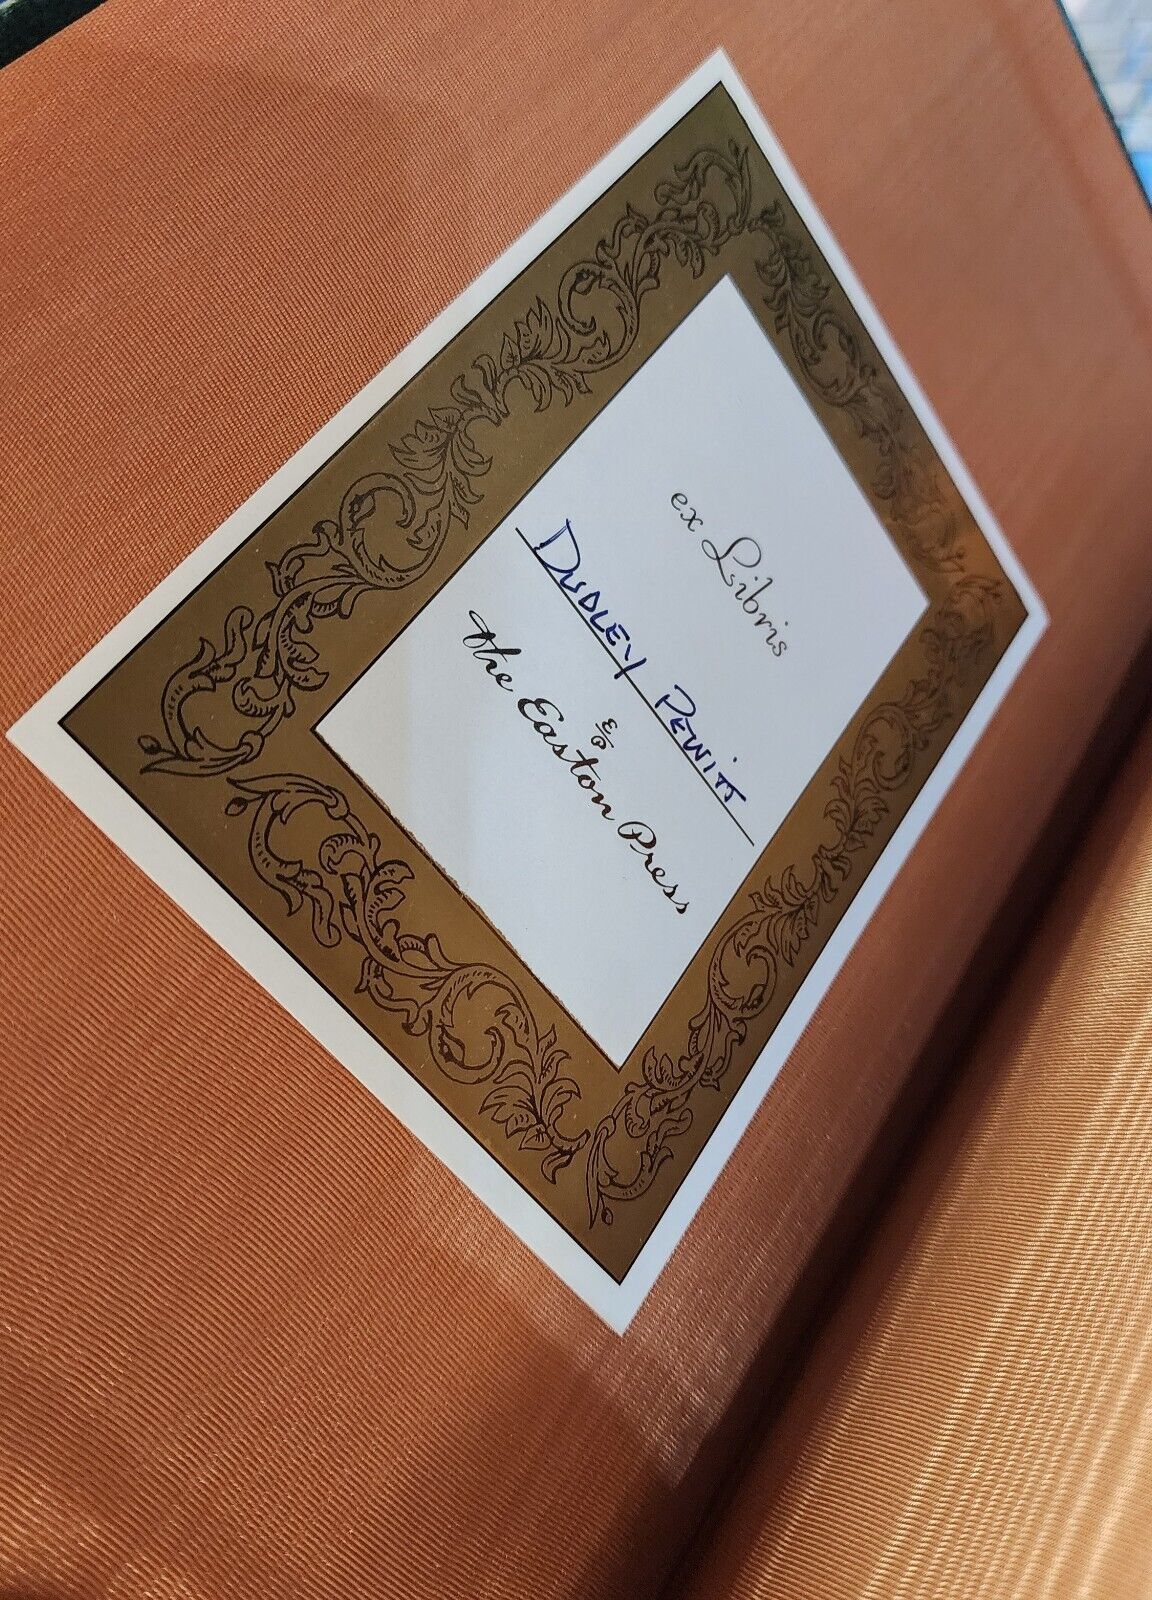 ex Libris
DUDLEY PEWITT
EP
the Easton Press